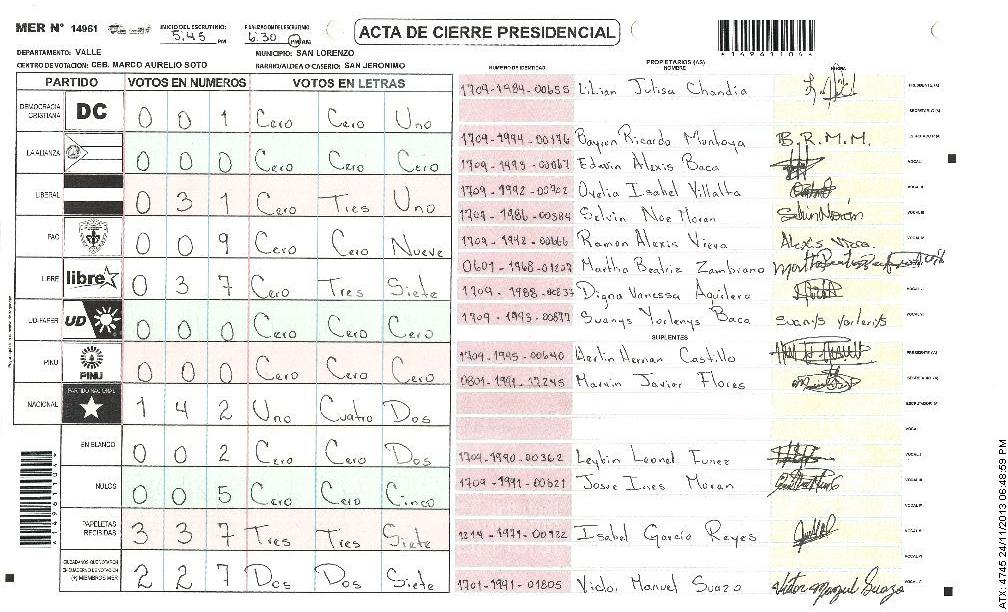 MER N° 14961
INICIO DEL ESCRUTINIO
5.45 PM
FINALIZACION DEL ESCRUTINIO
6.30 PM AM
ACTA DE CIERRE PRESIDENCIAL
DEPARTAMENTO: VALLE
MUNICIPIO: SAN LORENZO
CENTRO DE VOTACION: CEB. MARCO AURELIO SOTO
BARRIO/ALDEA O CASERIO: SAN JERONIMO
PARTIDO VOTOS EN NUMEROS VOTOS EN LETRAS
DEMOCRACIA CRISTIANA DC 0 0 1 Cero Cero Uno
LA ALIANZA 0 0 0 Cero Cero Cero
LIBERAL 0 3 1 Cero Tres Uno
PAC 0 0 9 Cero Cero Nueve
LIBRE libre 0 3 7 Cero Tres Siete
UD-FAPER UD 0 0 0 Cero Cero Cero
PINU PINU 0 0 0 Cero Cero Cero
NACIONAL PARTIDO NACIONAL 1 4 2 Uno Cuatro Dos
EN BLANCO 0 0 2 Cero Cero Dos
NULOS 0 0 5 Cero Cero Cinco
PAPELETAS RECIBIDAS 3 3 7 Tres Tres Siete
CIUDADANOS QUE VOTARON EN CUADERNO DE VOTACION (+) MIEMBROS MER 2 2 7 Dos Dos Siete
NUMERO DE IDENTIDAD
PROPIETARIOS (AS)
NOMBRE
FIRMA
1709-1984-00655 Lilian Julisa Chandia PRESIDENTE (A)
SECRETARIO (A)
1709-1994-00176 Bayron Ricardo Montoya B.R.M.M.
Edwin Alexis Baca
1709-1992-00902 Ovelia Isabel Villalta
1709-1986-00584 Selvin Noe Moran
Ramon Alexis Viera Alexis Viera.
Martha Beatriz Zambrano
Digna Vanessa Aguilera
Suanys Yorlenys Baca Suanys Yorlenys
SUPLENTES
1709-1945-00640 Castillo PRESIDENTE (A)
0801-1991-12245 Marvin Javier Flores SECRETARIO (A)
ESCRUTADOR (A)
1709-1990-00362 Leybin Leonel Funez
1709-1991-00621 Josue Ines Moran
Isabel Garcia Reyes
1701-1991-01805 Victor Manuel Suazo Victor Manuel Suazo
*149611044*
ATX: 4745 24/11/2013 06:48:59 PM